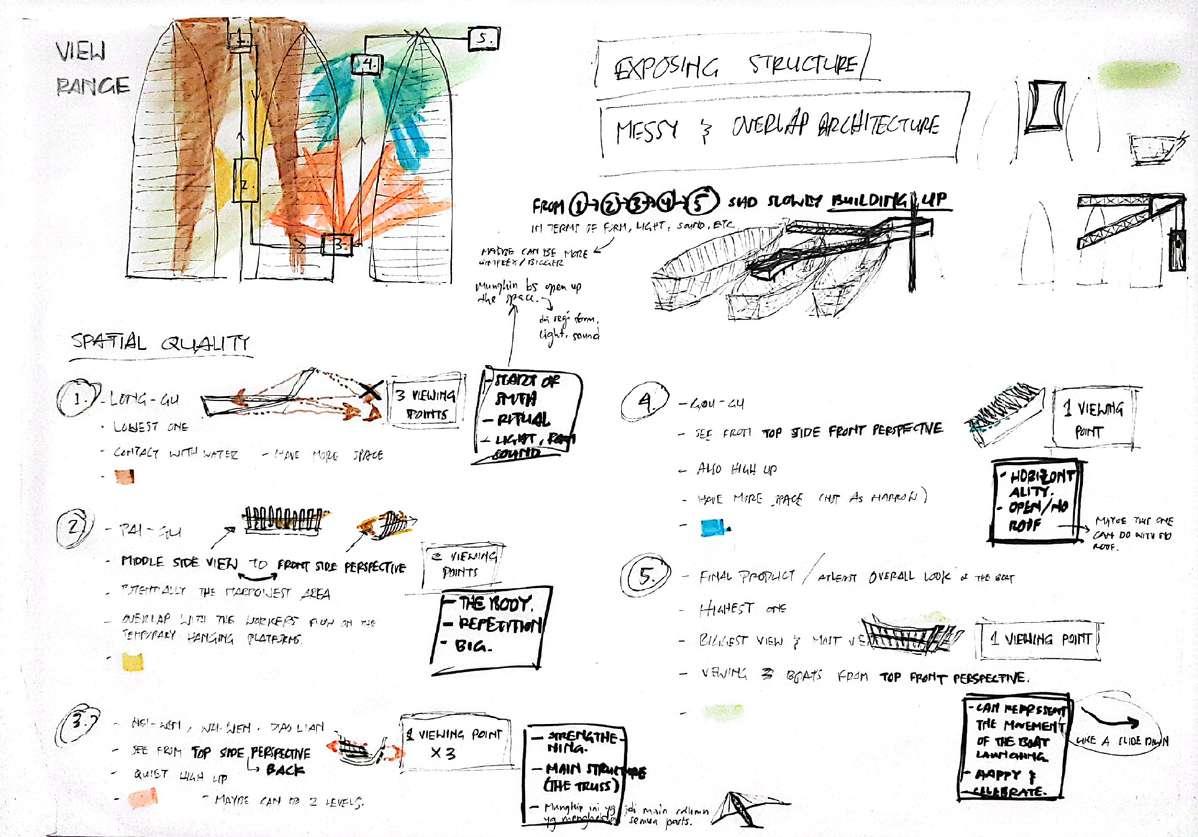 VIEW
RANGE
1.
2.
3.
4.
5.
EXPOSING STRUCTURE
MESSY & OVERLAP ARCHITECTURE
FROM 1→2→3→4→5 SHD SLOWLY BUILDING UP
IN TERMS OF FORM, LIGHT, SOUND, ETC
MAYBE CAN BE MORE
COMPLEX/BIGGER
Mungkin bs open up
the space.
dri segi form,
light, sound
SPATIAL QUALITY
1.
- LONG-GU
3 VIEWING
POINTS
- START OF
SMTH
- RITUAL
- LIGHT,
SOUND
LOWEST ONE
CONTACT WITH WATER - HAVE MORE SPACE
2.
- PAI-GU
- MIDDLE SIDE VIEW TO FRONT SIDE PERSPECTIVE
2 VIEWING
POINTS
- POTENTIALLY THE NARROWEST AREA
- OVERLAP WITH THE WORKERS FLOW ON THE
TEMPORARY HANGING PLATFORMS.
- THE BODY.
- REPETITION
- BIG.
3.
- NEI-WEN, WAI-WEN, DAO LIAN
- SEE FROM TOP SIDE PERSPECTIVE
BACK
1 VIEWING POINT
X3
- QUIET HIGH UP
- MAYBE CAN DO 2 LEVELS.
- STRENGTHE-
NING.
- MAIN STRUCTURE
(THE TRUSS)
- Mungkin ini yg jdi main column
semua parts.
4.
- GOU-GU
- SEE FROM TOP SIDE FRONT PERSPECTIVE
1 VIEWING
POINT
- ALSO HIGH UP
- HAVE MORE SPACE (NOT AS NARROW)
- HORIZONT
ALITY.
- OPEN/NO
ROOF
MAYBE THIS ONE
CAN DO WITH NO
ROOF.
5.
- FINAL PRODUCT / ATLEAST OVERALL LOOK OF THE BOAT
- HIGHEST ONE
- BIGGEST VIEW &
1 VIEWING POINT
- VIEWING 3 BOATS FROM TOP FRONT PERSPECTIVE.
- CAN REPRESENT
THE MOVEMENT
OF THE BOAT
LAUNCHING
- HAPPY &
CELEBRATE.
LIKE A SLIDE DOWN